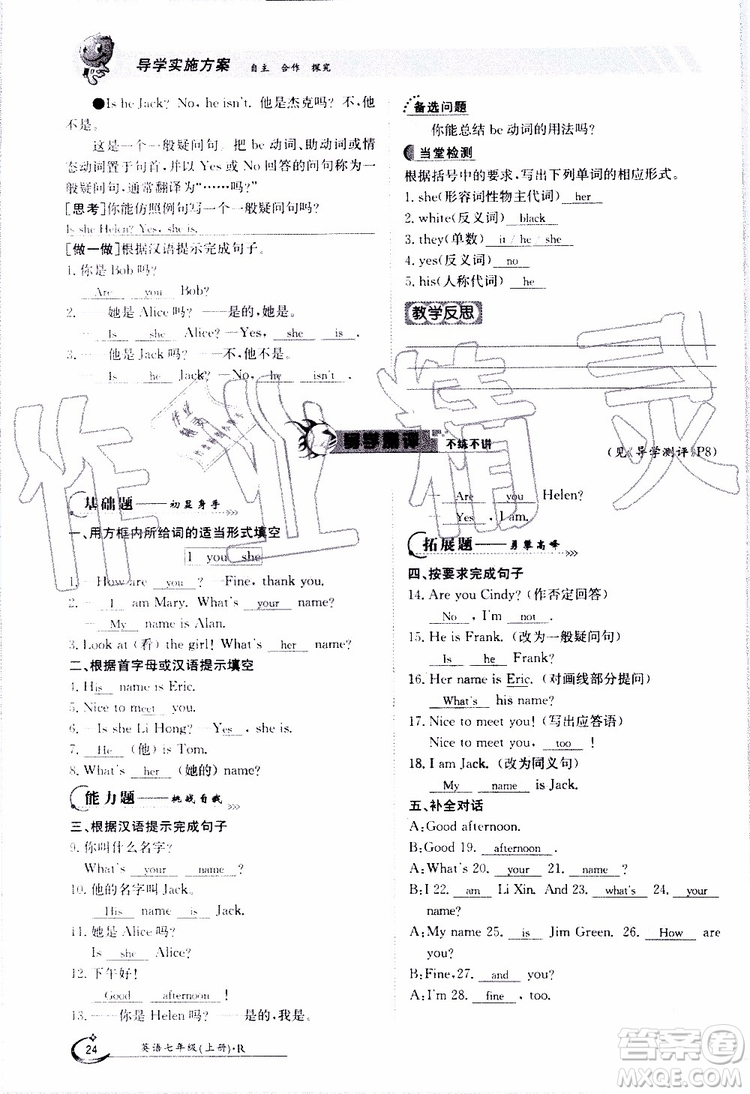 导学实施方案 自主 合作 探究
●Is he Jack? No, he isn't. 他是杰克吗？不，他不是。
这是一个一般疑问句。把 be 动词、助动词或情
态动词置于句首，并以 Yes 或 No 回答的问句称为一
般疑问句，通常翻译为“……吗？”
[思考]你能仿照例句写一个一般疑问句吗？
Is she Helen? Yes, she is.
[做一做]根据汉语提示完成句子。
1. 你是 Bob 吗？
Are you Bob?
2. ——她是 Alice 吗？——是的，她是。
—Is she Alice? —Yes, she is.
3. ——他是 Jack 吗？——不，他不是。
—Is he Jack? —No, he isn't.
备选问题
你能总结 be 动词的用法吗？
当堂检测
根据括号中的要求，写出下列单词的相应形式。
1. she(形容词性物主代词) her
2. white(反义词) black
3. they(单数) it / he / she
4. yes(反义词) no
5. his(人称代词) he
教学反思
导学测评 不练不讲
(见《导学测评》P8)
基础题——初显身手
一、用方框内所给词的适当形式填空
I you she
1. —How are you? —Fine, thank you.
2. —I am Mary. What's your name?
—My name is Alan.
3. Look at (看) the girl! What's her name?
二、根据首字母或汉语提示填空
4. His name is Eric.
5. Nice to meet you.
6. —Is she Li Hong? —Yes, she is.
7. He (他) is Tom.
8. What's her (她的) name?
能力题——挑战自我
三、根据汉语提示完成句子
9. 你叫什么名字？
What's your name?
10. 他的名字叫 Jack。
His name is Jack.
11. 她是 Alice 吗？
Is she Alice?
12. 下午好！
Good afternoon!
13. ——你是 Helen 吗？——是的，我是。
—Are you Helen?
Yes, I am.
拓展题——勇攀高峰
四、按要求完成句子
14. Are you Cindy? (作否定回答)
No, I'm not.
15. He is Frank. (改为一般疑问句)
Is he Frank?
16. Her name is Eric. (对画线部分提问)
What's his name?
17. Nice to meet you! (写出应答语)
Nice to meet you, too!
18. I am Jack. (改为同义句)
My name is Jack.
五、补全对话
A: Good afternoon.
B: Good 19. afternoon.
A: What's 20. your 21. name?
B: I 22. am Li Xin. And 23. what's 24. your name?
A: My name 25. is Jim Green. 26. How are you?
B: Fine, 27. and you?
A: I'm 28. fine, too.
24 英语七年级(上册)·R
作业精灵